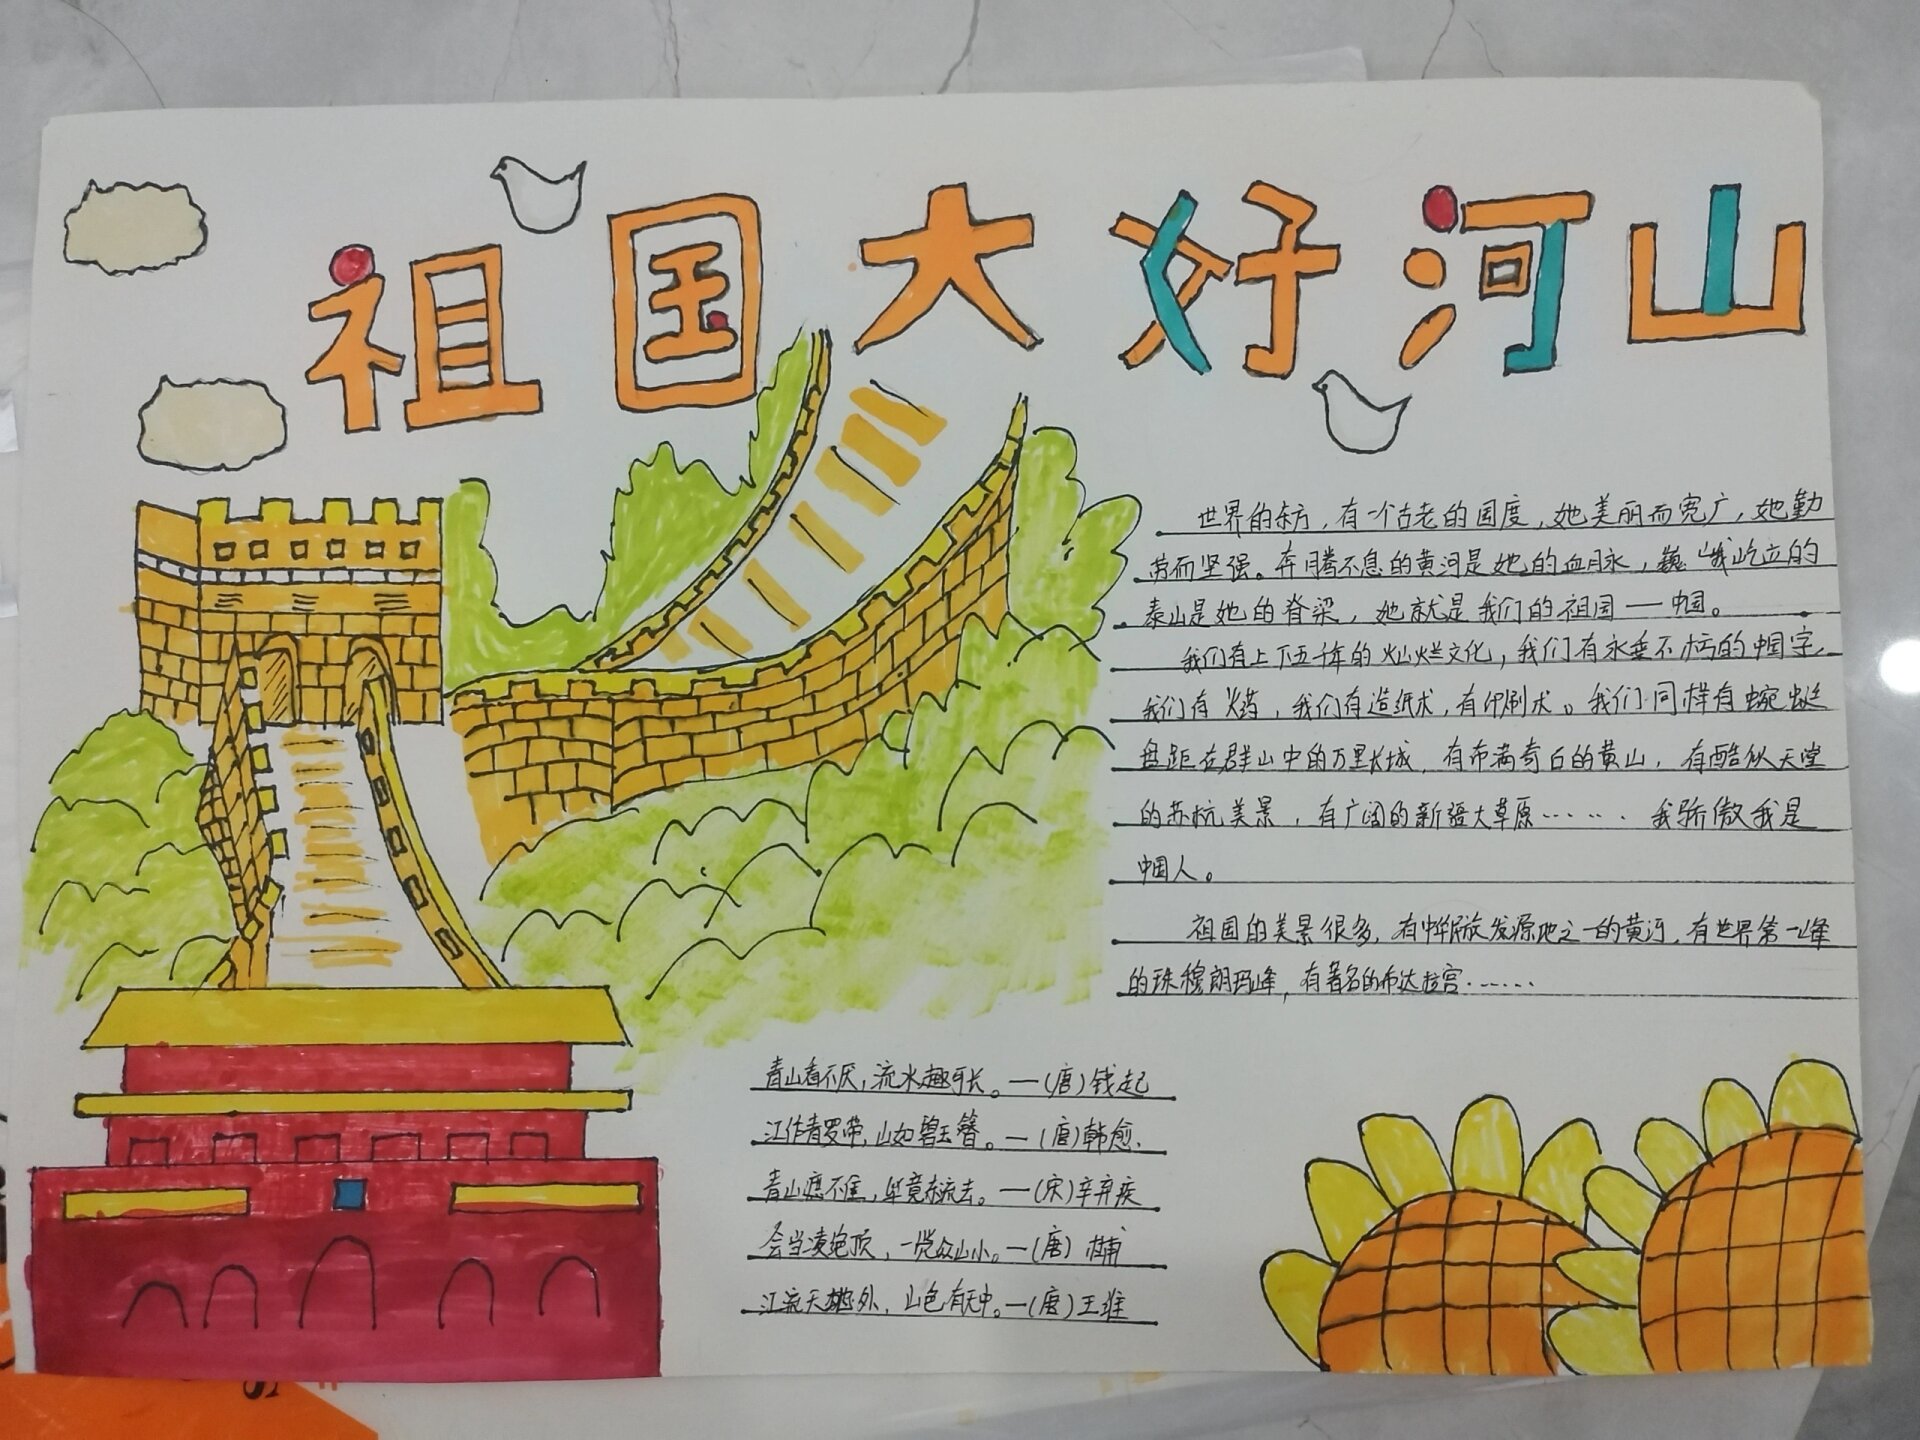 祖国大好河山
世界的东方，有一个古老的国度，她美丽而宽广，她勤
劳而坚强。奔腾不息的黄河是她的血脉，巍峨屹立的
泰山是她的脊梁，她就是我们的祖国——中国。
我们有上下五千年的灿烂文化，我们有永垂不朽的中国字，
我们有火药，我们有造纸术，有印刷术。我们同样有蜿蜒
盘距在群山中的万里长城，有布满奇石的黄山，有酷似天堂
的苏杭美景，有广阔的新疆大草原…… 我骄傲我是
中国人。
祖国的美景很多，有中华民族发源地之一的黄河，有世界第一峰
的珠穆朗玛峰，有著名的布达拉宫……
青山看不厌，流水趣何长。—（唐）钱起
江作青罗带，山如碧玉簪。—（唐）韩愈
青山遮不住，毕竟东流去。—（宋）辛弃疾
会当凌绝顶，一览众山小。—（唐）杜甫
江流天地外，山色有无中。—（唐）王维